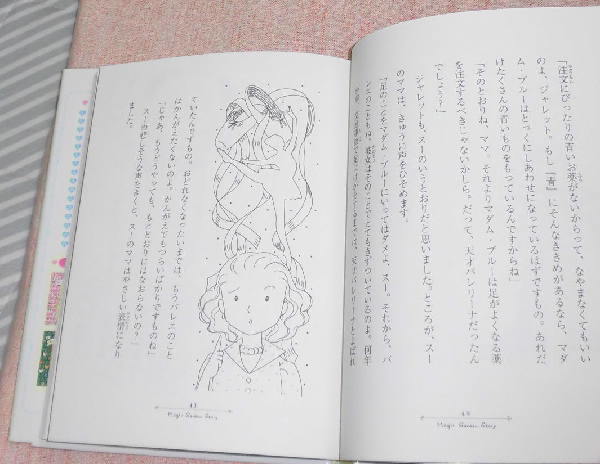 「注文にぴったりの青いお薬がないからって、なやまなくてもいい
のよ、ジャレット。もし「青」にそんなききめがあるなら、マダ
ム・ブルーはとっくにしあわせになっているはずですもの。あれだ
けたくさんの青いものをもっているんですからね」
「そのとおりね、ママ。それよりマダム・ブルーは足がよくなる薬
を注文するべきじゃないかしら。だって、天才バレリーナだったん
でしょう？」
ジャレットも、スーのいうとおりだと思いました。ところが、スー
のママは、きゅうに声をひそめます。
「足のことをマダム・ブルーにいってはダメよ、スー。それから、バ
レエのこともね。彼女はそのことでとてもきずついているのよ。何年
天才バレリーナとよばれ
ていたんですもの。おどれなくなったいまでは、もうバレエのこと
はかんがえたくないのよ。かんがえてもつらいばかりですものね」
「じゃあ、もうどうやっても、もとどおりにはならないの？」
スーが悲しそうな声をきくと、スーのママはやさしい表情になり
ました。
43
Magic Garden Story
42
Magic Garden Story